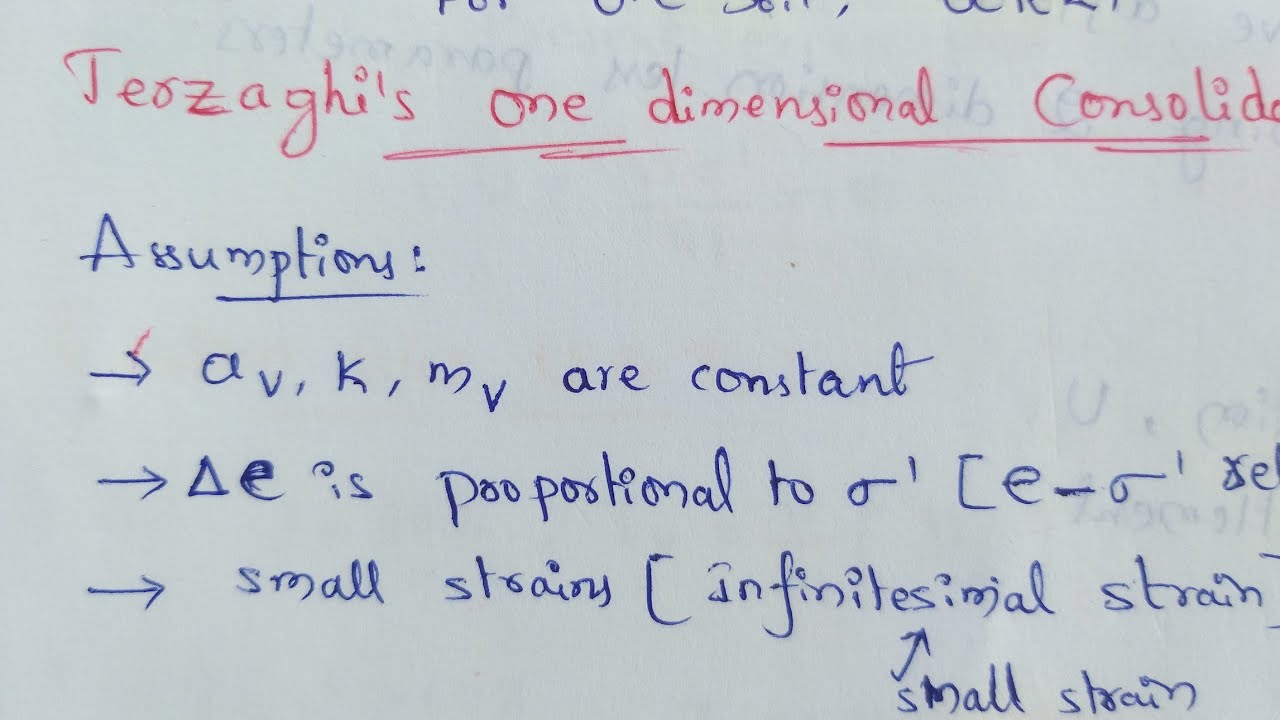 Terzaghi's one dimensional Consolida
Assumptions:
→ av, k, mv are constant
→ Δe is proportional to σ' [e-σ' rel
→ small strains [Infinitesimal strain]
↗
small strain